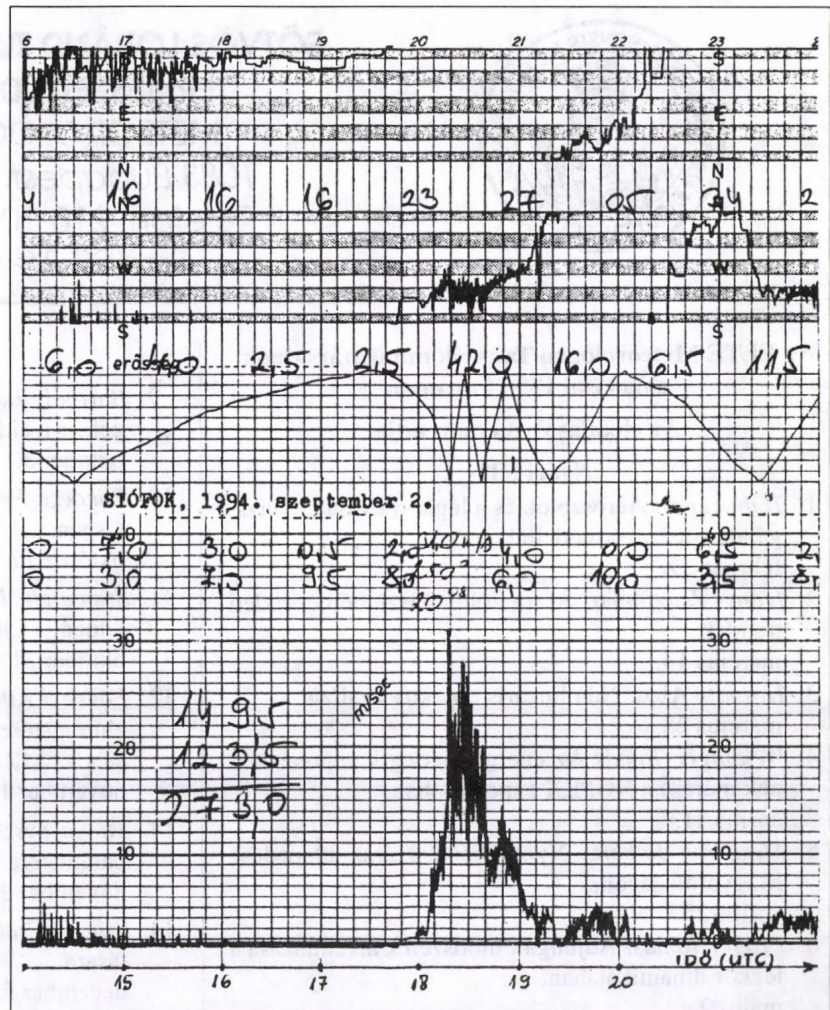 6 17 18 19 20 21 22 23
S S
E E
N N
4 16 16 16 23 27 05 34 2
N N
W W
S S
6,0 erősség 1,0 2,5 2,5 42,0 16,0 6,5 11,5
SIÓFOK, 1994. szeptember 2.
40 40
0 7,0 3,0 0,5 2,0 31,0 m/s 4,0 0,0 6,5 2,
0 3,0 7,0 9,5 8,0 250° 6,0 10,0 3,5 8,
30 30
m/sec
149,5
20 20
123,5
273,0
10 10
0 0
IDŐ (UTC)
15 16 17 18 19 20